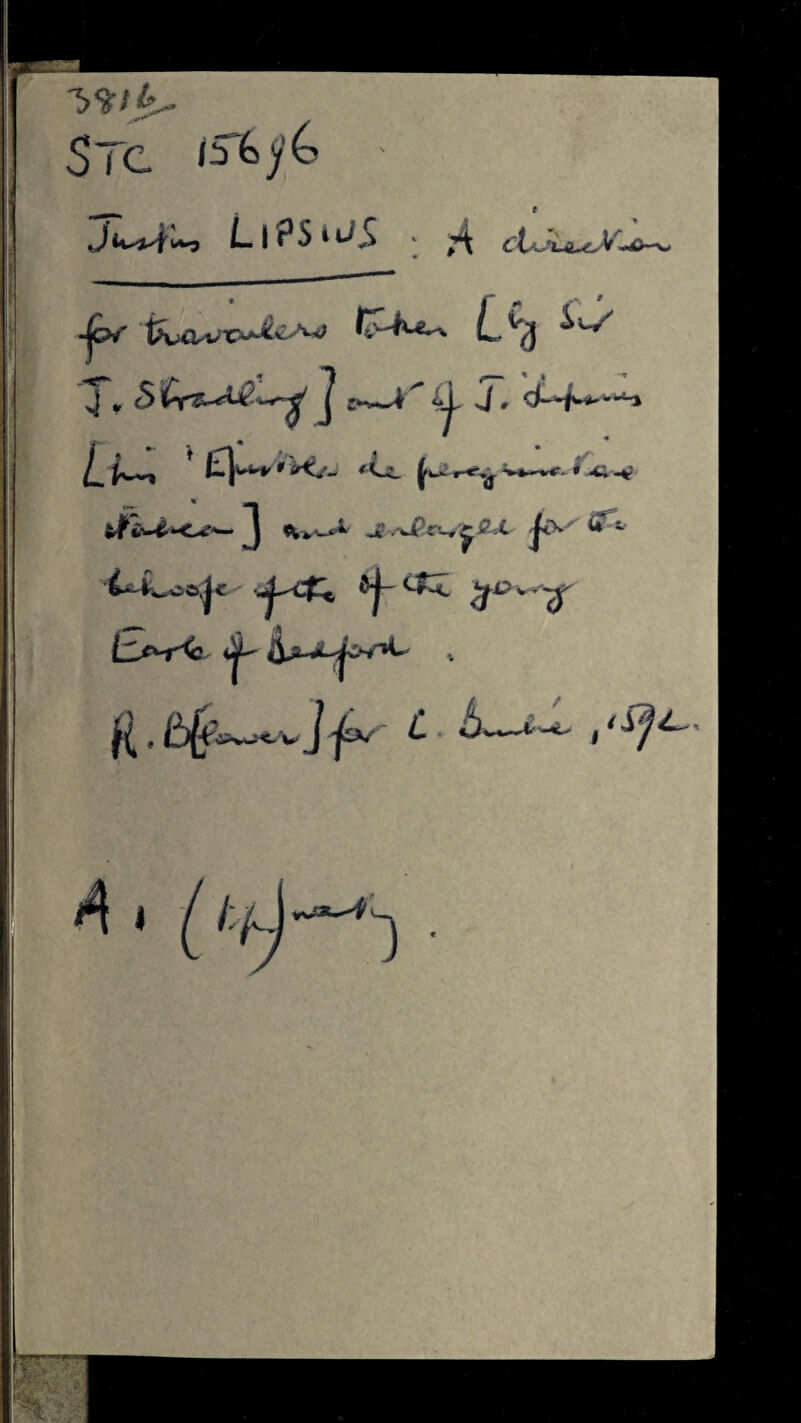 STC 15696
Justus LIPSIUS . A direction
for travailers [taken [by Sir
J. Stradling] out of J. Lipsius
his ' Epistola de peregrinatione
italica ] and enlarged for the
behoofe of the young
Earle of Bedford .
R. B[ourne] for C. Burbie, 1592.
A1 (